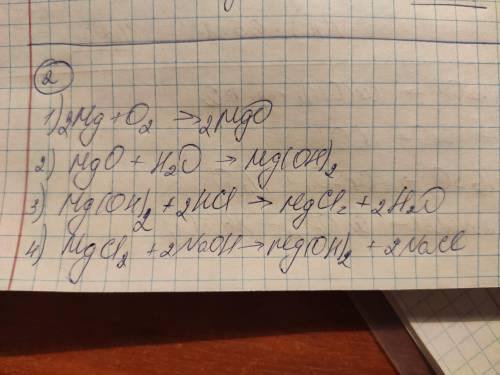 2
1) 2Mg + O₂ → 2MgO
2) MgO + H₂O → Mg(OH)₂
3) Mg(OH)₂ + 2HCl → MgCl₂ + 2H₂O
4) MgCl₂ + 2NaOH → Mg(OH)₂ + 2NaCl